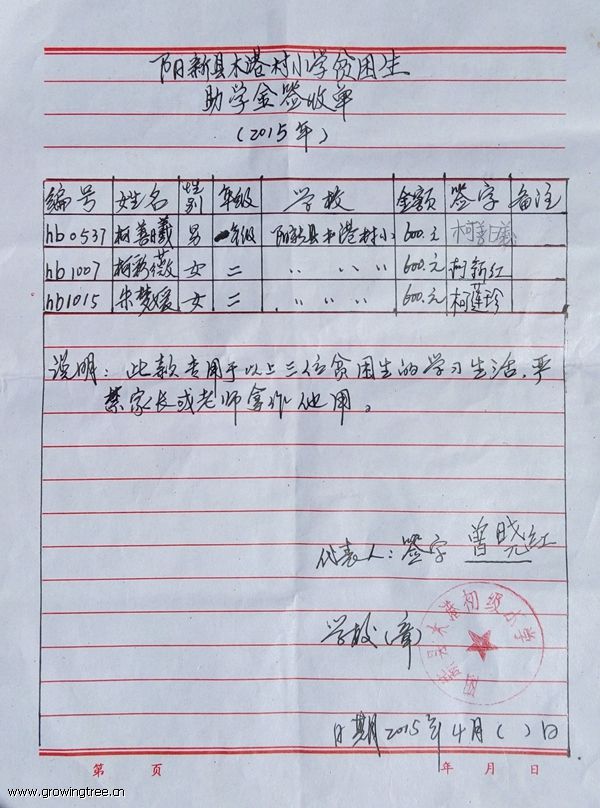 阳新县木港村小学贫困生
助学金签收单
(2015年)
编号 姓名 性别 年级 学校 金额 签字 备注
hb0537 柯善曦 男 一年级 阳新县木港村小 600.元 柯善曦
hb1007 柯新薇 女 二 〃 〃 〃 〃 600.元 柯新红
hb1015 朱梦媛 女 二 〃 〃 〃 〃 600.元 柯莲珍
说明：此款专用于以上三位贫困生的学习生活，严
禁家长或老师拿作他用。
代表人：签字 曾晓红
学校(章)
日期2015年4月( )日
第 页 年 月 日
www.growingtree.cn